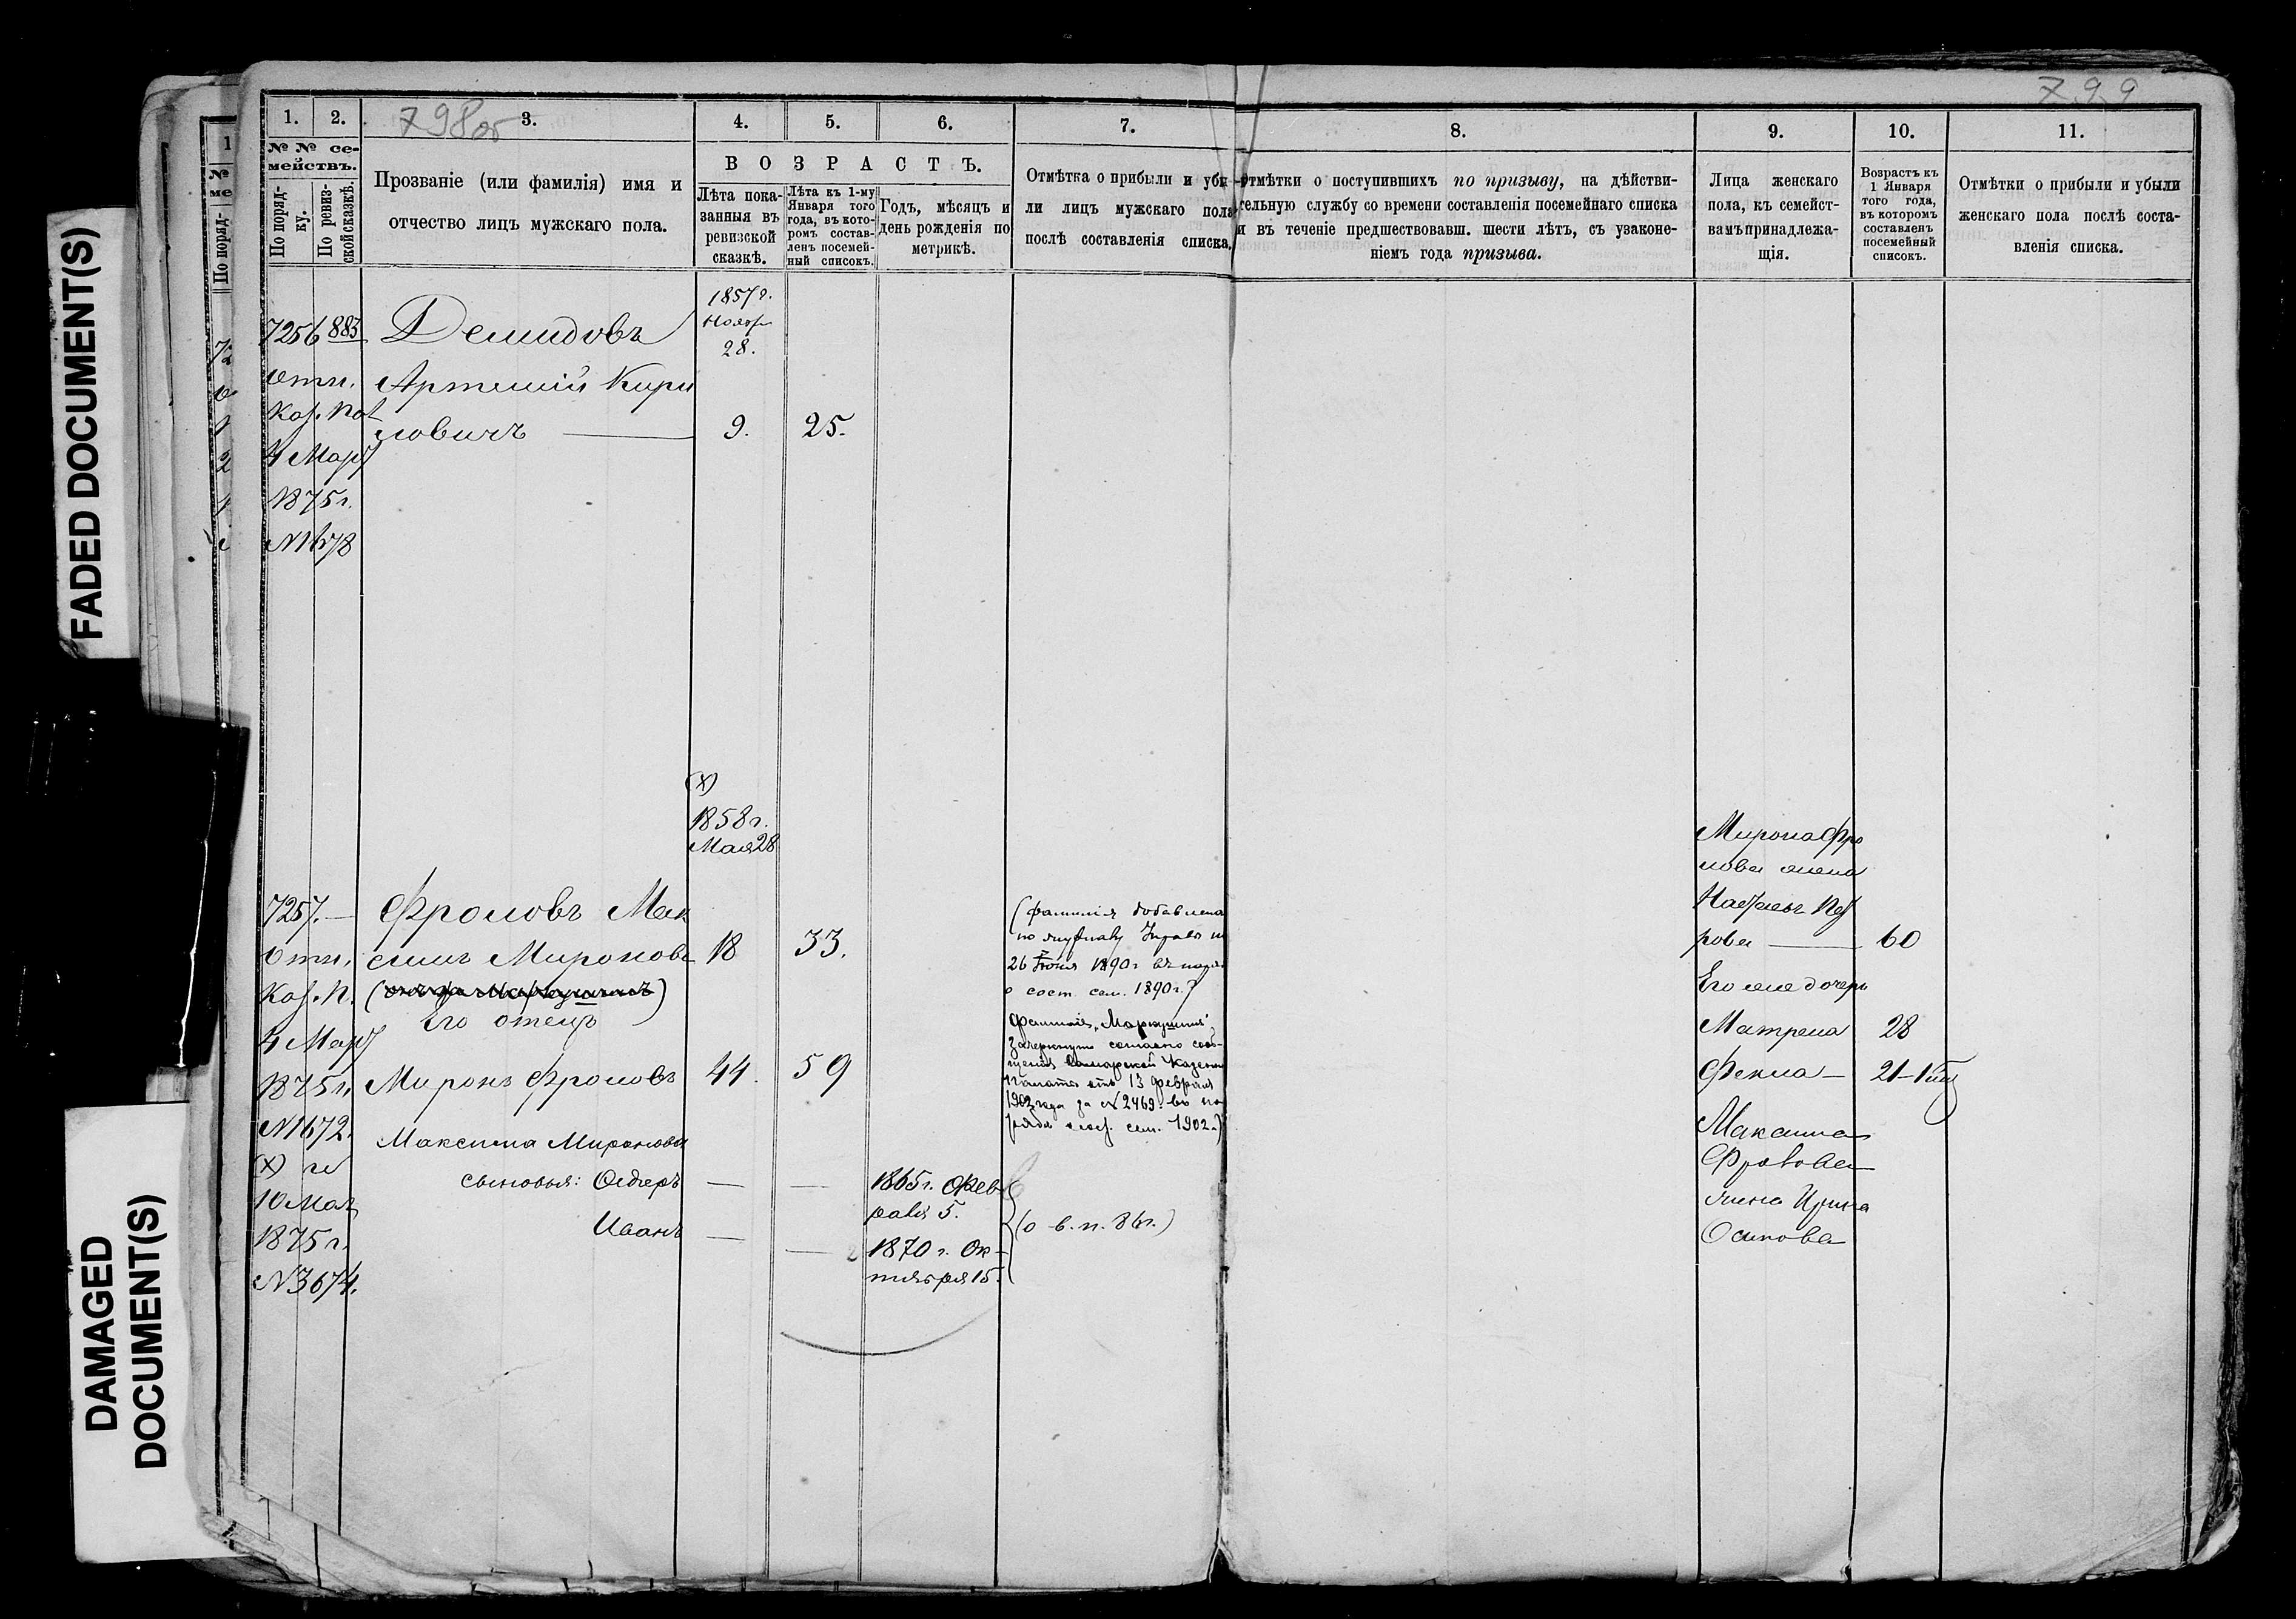 FADED DOCUMENT(S)
DAMAGED
DOCUMENT(S)
798об
799
1.
2.
3.
4.
5.
6.
7.
8.
9.
10.
11.
№ № се-
мействъ.
По поряд-
ку.
По ревиз-
ской сказкѣ.
Прозваніе (или фамилія) имя и
отчество лицъ мужскаго пола.
ВОЗРАСТЪ.
Лѣта пока-
занныя въ
ревизской
сказкѣ.
Лѣта къ 1-му
Января того
года, въ кото-
ромъ состав-
ленъ посемей-
ный списокъ.
Годъ, мѣсяцъ и
день рожденія по
метрикѣ.
Отмѣтка о прибыли и убы-
ли лицъ мужскаго пола
послѣ составленія списка.
Отмѣтки о поступившихъ по призыву, на дѣйстви-
тельную службу со времени составленія посемейнаго списка
и въ теченіе предшествовавш. шести лѣтъ, съ узаконе-
ніемъ года призыва.
Лица женскаго
пола, къ семейст-
вамъ принадлежа-
щія.
Возрастъ къ
1 Января
того года,
въ которомъ
составленъ
посемейный
списокъ.
Отмѣтки о прибыли и убыли
женскаго пола послѣ соста-
вленія списка.
7256 883 Демидовъ
1857г.
Нояб
28.
отн. Артемій Кири
Каз. Пал
ловичъ — 9. 25.
4 Мар
1875г.
№1678
(х)
1858г.
Мая 28
7257. — Фроловъ Мак
отн. симъ Мироновъ 18 33.
Каз. П.
Его отецъ
4 Мар
1875г. Миронъ Фроловъ 44. 59
№1672.
Максима Миронова
(х) и
сыновья: Ѳедоръ — — 1865г. Фев
раля 5.
10 Мая
1875г.
Иванъ — — 1870г. Ок-
тября 15.
№3674.
(фамилія добавлена
26 Іюня 1890г.
о сост. сем. 1890г.)
Фамилія „Маркушинъ"
зачеркнута согласно сооб-
щенія Самарской Казенн
Палаты отъ 13 Февраля
1902 года за №2469. въ на
ряда о сост. сем. 1902г.)
(о в. п. 86г.)
Мирона Фро
лова жена
рова — 60
Его же дочери
Матрена 28
Фекла — 21
Максима
Фролова
жена Ирина
Осипова